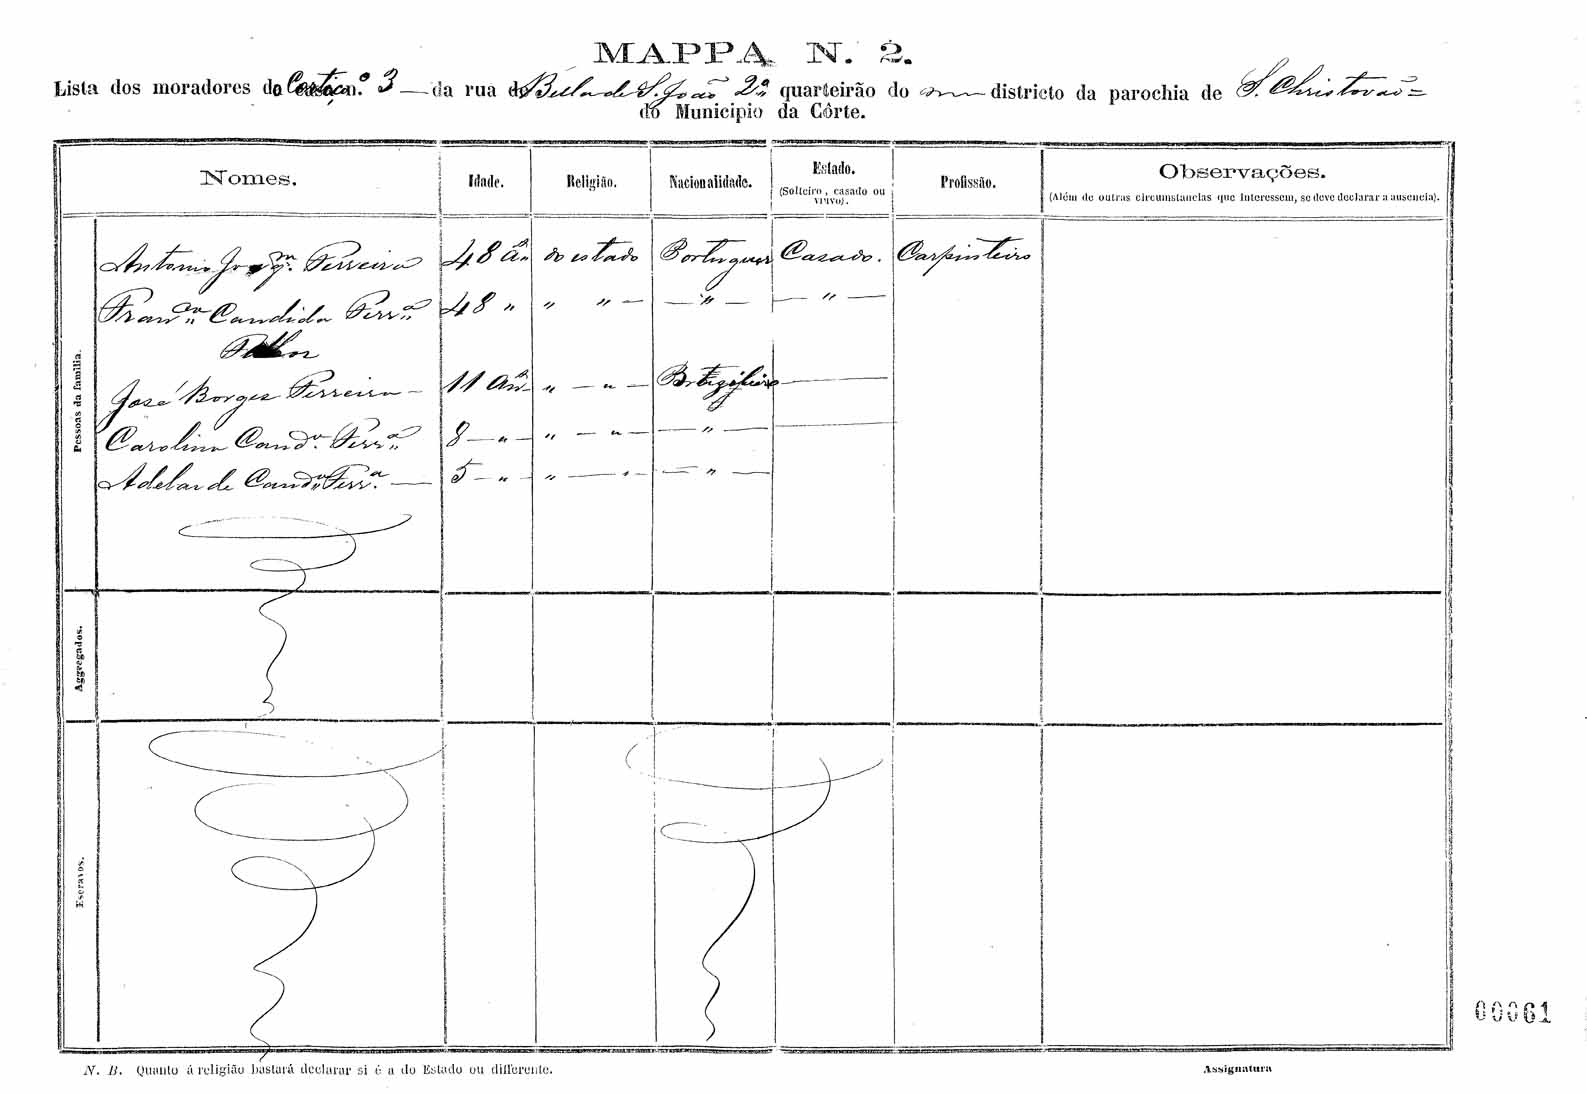 MAPPA N. 2.
Lista dos moradores do Cortiço n.º 3 — da rua do Bella de S. João 2º quarteirão do — districto da parochia de S. Christovão =
do Municipio da Côrte.
Nomes. Idade. Religião. Nacionalidade. Estado. Profissão. Observações.
(Solteiro, casado ou viuvo). (Além de outras circumstancias que interessem, se deve declarar a ausencia).
Pessoas da familia.
Antonio Joaqm. Ferreira 48 an do estado Portuguez Casado. Carpinteiro
Franca Candida Ferra 48 " " " — — " — — " —
Filhos
José Borges Ferreira — 11 an " — " — ———
Carolina Canda. Ferra 8 — " — " — " — — " — ———
Adelaide Canda Ferra. — 5 — " — " — " — — " —
Aggregados.
Escravos.
00061
N. B. Quanto á religião bastará declarar si é a do Estado ou differente.
Assignatura